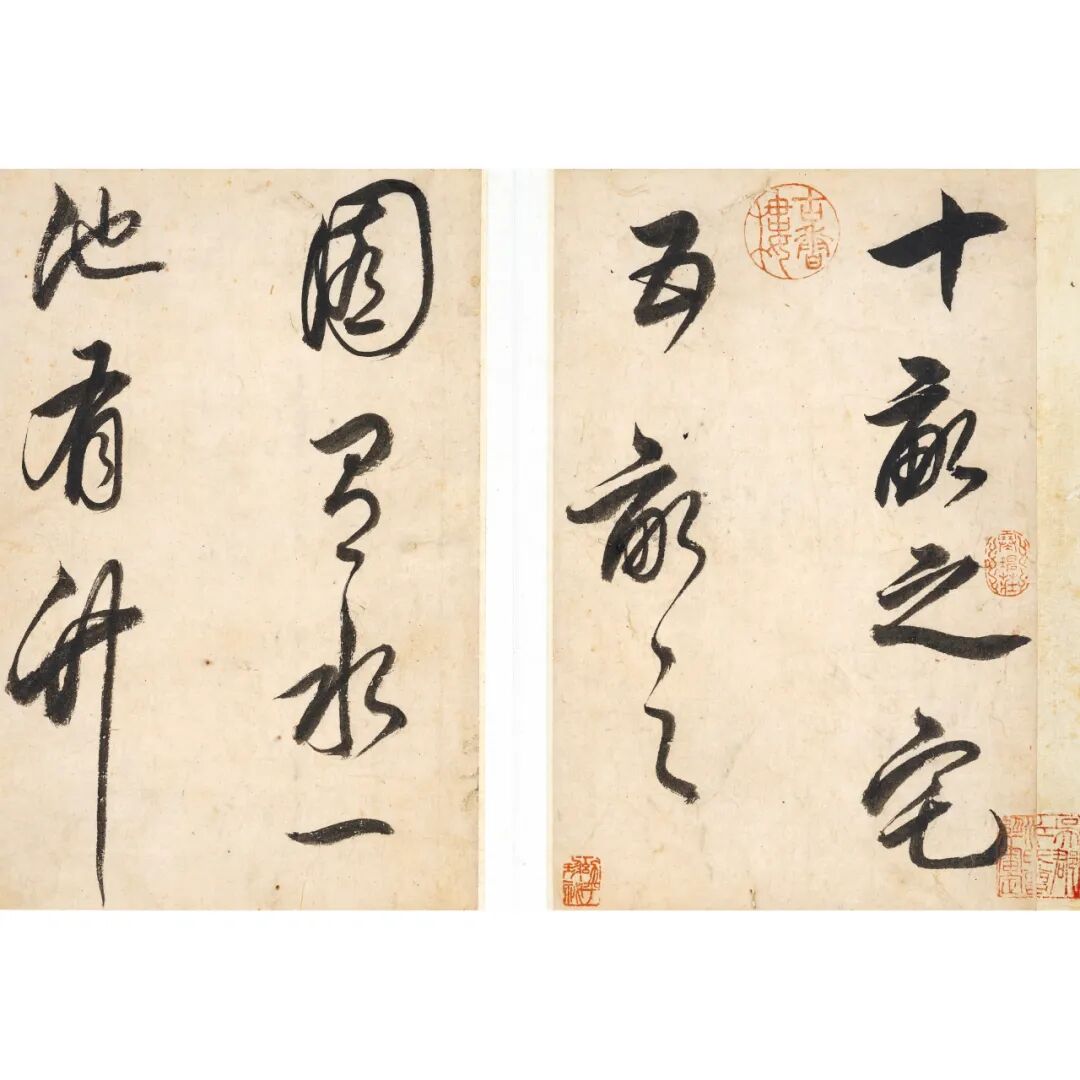 十畝之宅
五畝之
園有水一
池有竹
古香樓